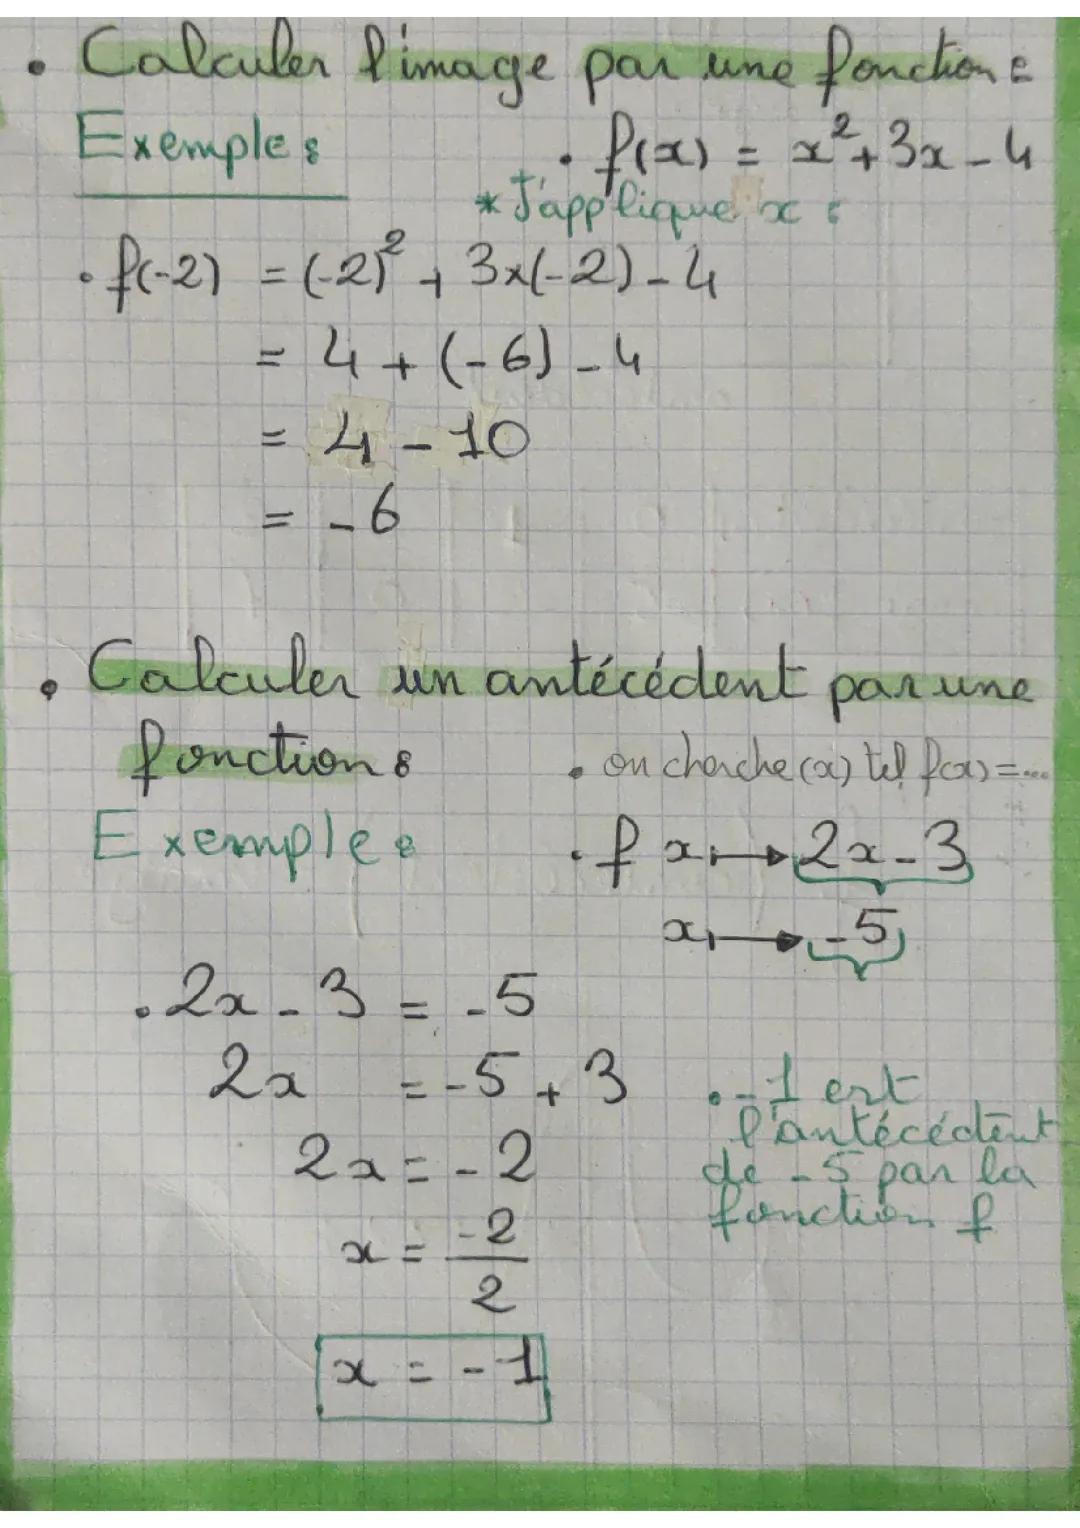 • Calculer l'image par une fonction :
Exemple :
• f(x) = x² + 3x - 4
* J'applique x :
• f(-2) = (-2)² + 3x(-2) - 4
= 4 + (-6) - 4
= 4 - 10
= -6
• Calculer un antécédent par une
fonction :
• on cherche (x) tel f(x) = ...
Exemple :
• f x ↦ 2x - 3
x ↦ -5
• 2x - 3 = -5
2x = -5 + 3
2x = -2
x = -2/2
x = -1
• -1 est
l'antécédent
de -5 par la
fonction f